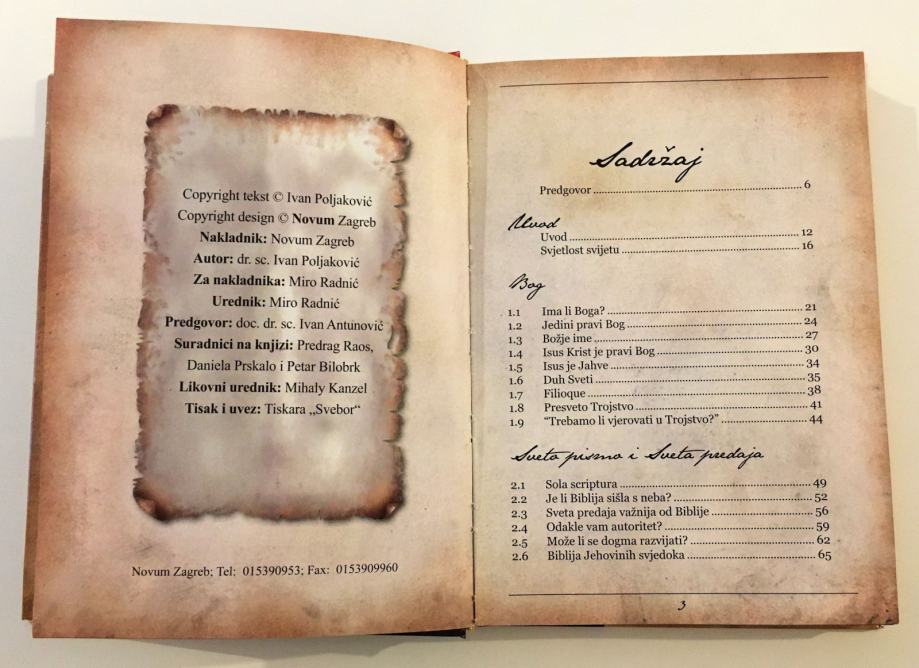 Copyright tekst © Ivan Poljaković
Copyright design © Novum Zagreb
Nakladnik: Novum Zagreb
Autor: dr. sc. Ivan Poljaković
Za nakladnika: Miro Radnić
Urednik: Miro Radnić
Predgovor: doc. dr. sc. Ivan Antunović
Suradnici na knjizi: Predrag Raos,
Daniela Prskalo i Petar Bilobrk
Likovni urednik: Mihaly Kanzel
Tisak i uvez: Tiskara „Svebor“
Novum Zagreb; Tel; 015390953; Fax: 0153909960
Sadržaj
Predgovor 6
Uvod
Uvod 12
Svjetlost svijetu 16
Bog
1.1 Ima li Boga? 21
1.2 Jedini pravi Bog 24
1.3 Božje ime 27
1.4 Isus Krist je pravi Bog 30
1.5 Isus je Jahve 34
1.6 Duh Sveti 35
1.7 Filioque 38
1.8 Presveto Trojstvo 41
1.9 “Trebamo li vjerovati u Trojstvo?” 44
Sveto pismo i Sveta predaja
2.1 Sola scriptura 49
2.2 Je li Biblija sišla s neba? 52
2.3 Sveta predaja važnija od Biblije 56
2.4 Odakle vam autoritet? 59
2.5 Može li se dogma razvijati? 62
2.6 Biblija Jehovinih svjedoka 65
3